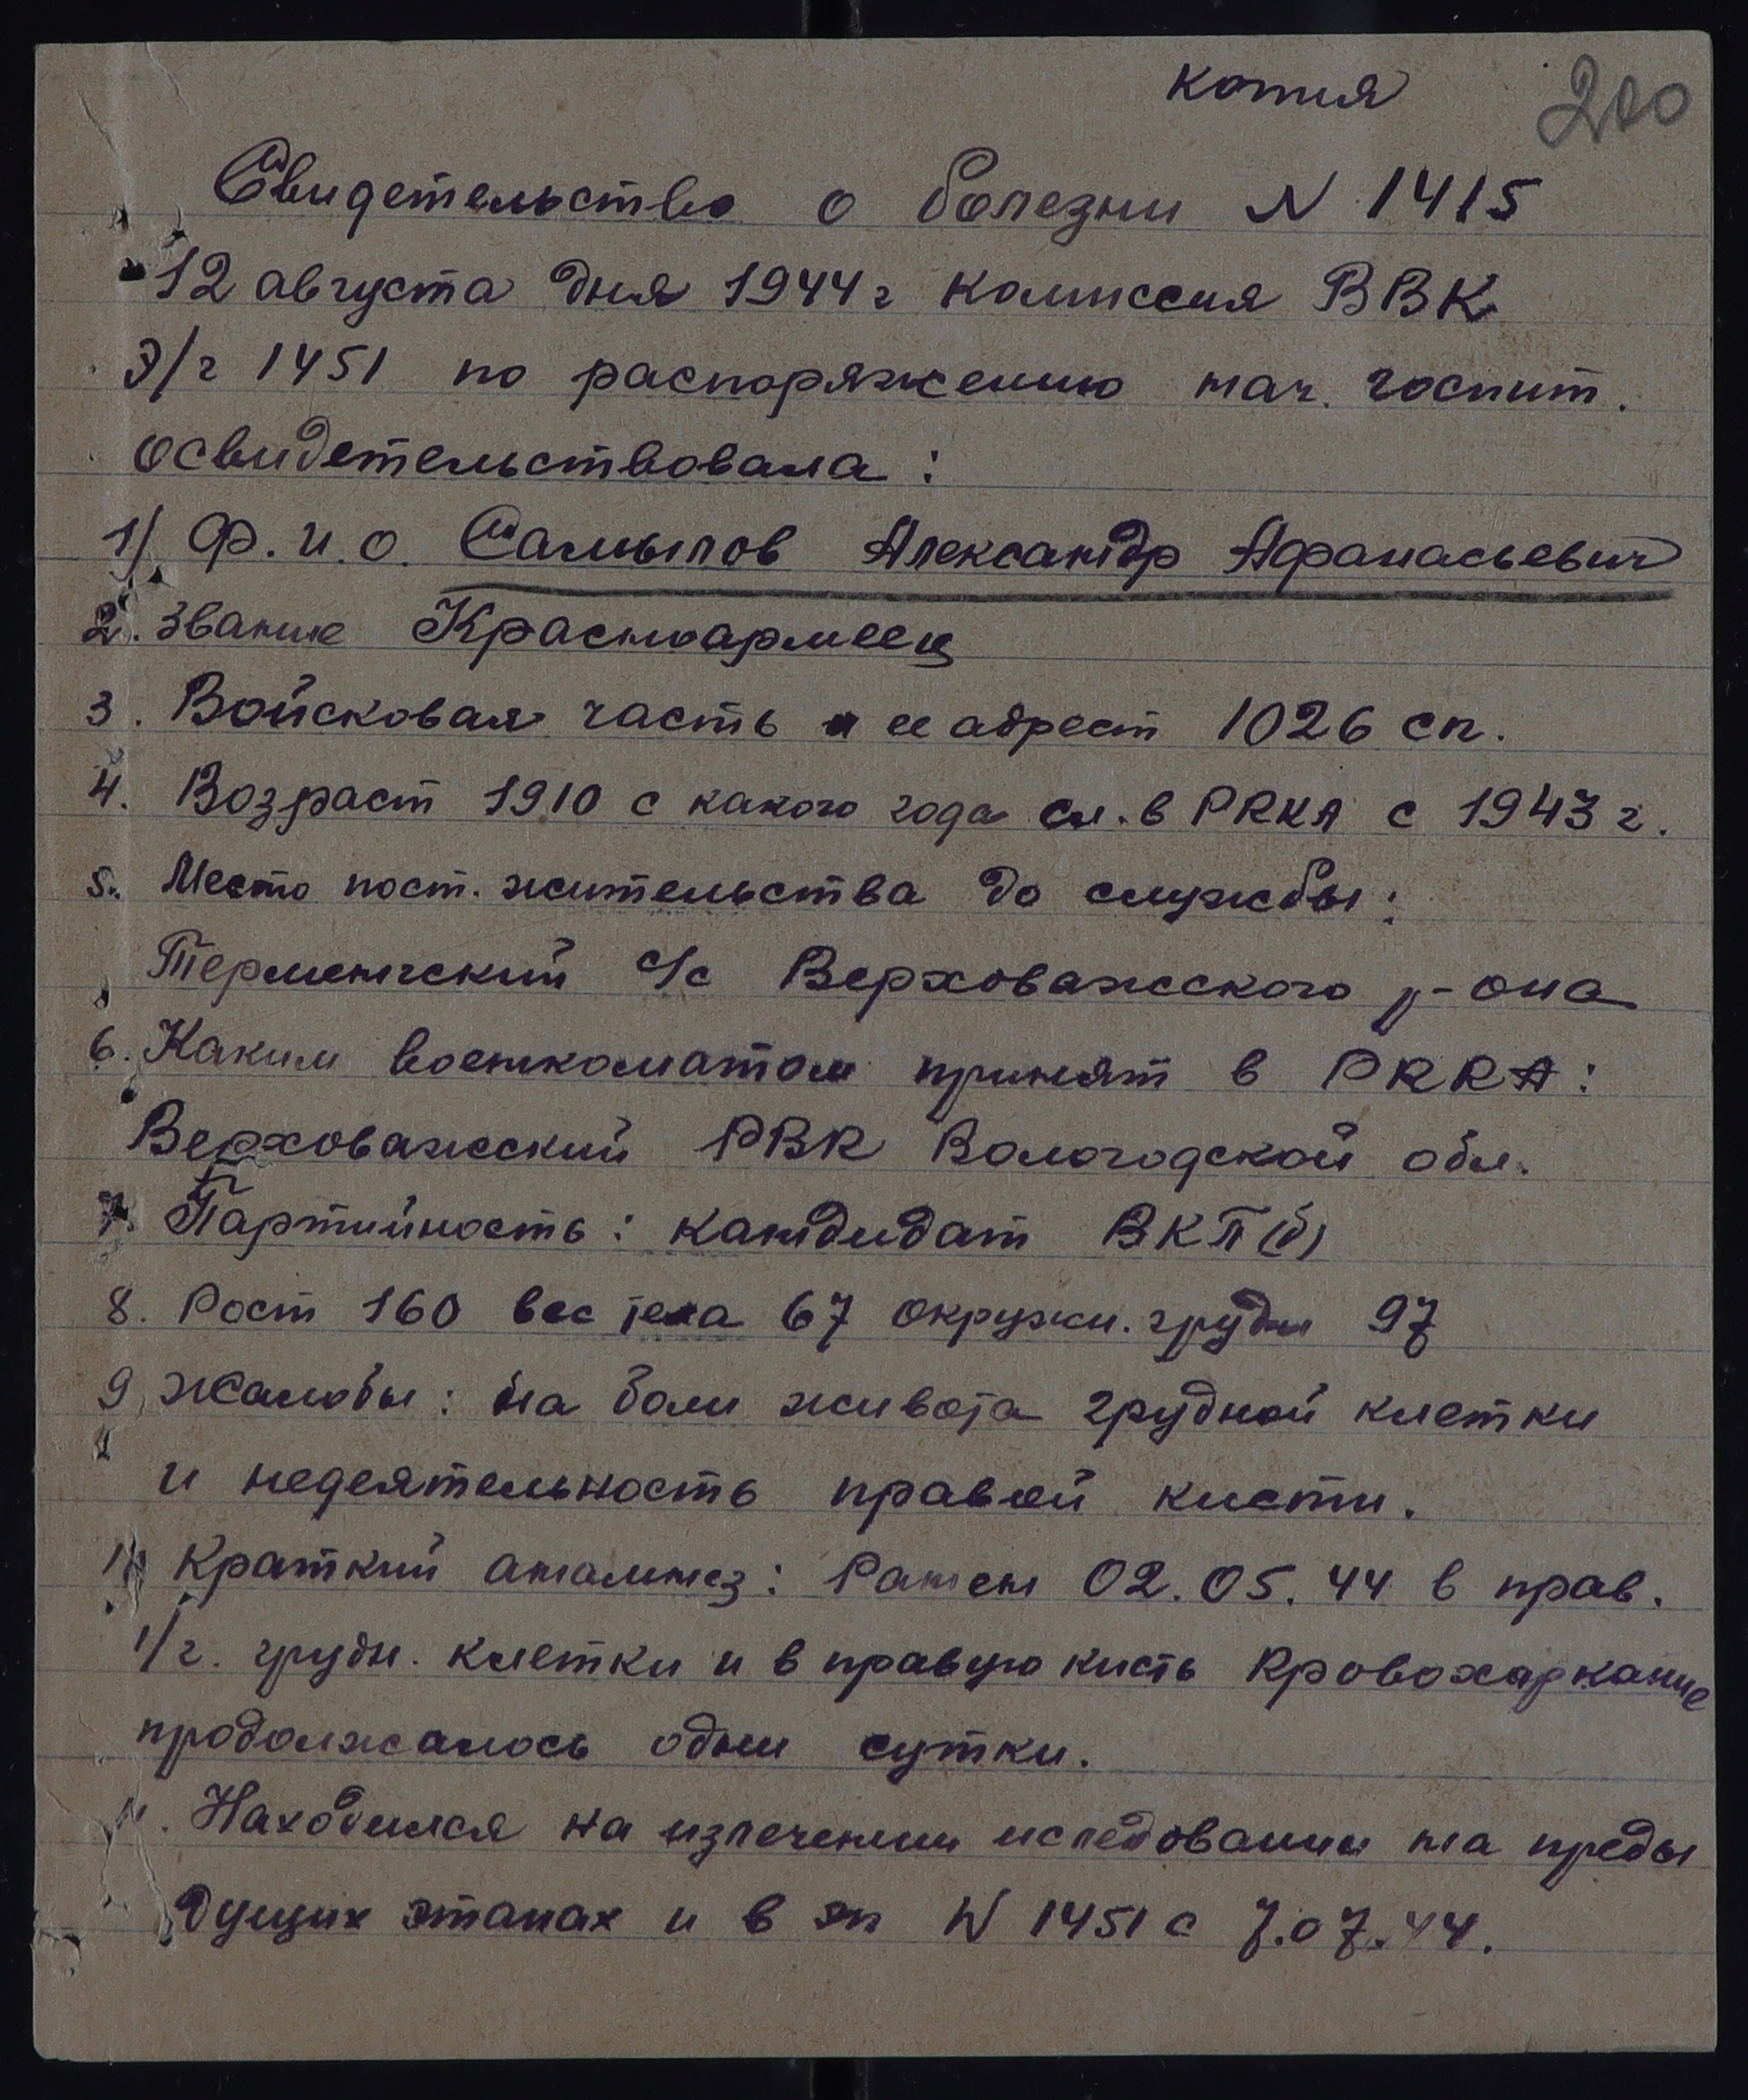 копия 200
Свидетельство о болезни N 1415
12 августа дня 1944 г комиссия ВВК
Э/г 1451 по распоряжению нач. госпит.
освидетельствовала:
1) Ф.И.О. Самылов Александр Афанасьевич
2. Звание Красноармеец
3. Войсковая часть и ее адрест 1026 сп.
4. Возраст 1910 с какого года сл. в РККА с 1943 г.
5. Место пост. жительства до службы:
Терменгский с/с Верховажского р-она
6. Каким военкоматом принят в РККА:
Верховажский РВК Вологодской обл.
7. Партийность: кандидат ВКП(б)
8. Рост 160 вес тела 67 окружн. груди 97
9. Жалобы: на боли живота грудной клетки
и недеятельность правой кисти.
10 Краткий анамнез: Ранен 02.05.44 в прав.
1/2. грудн. клетки и в правую кисть Кровохаркание
продолжалось одни сутки.
11. Находился на излечении иследовании на преды
дущих этапах и в эг N 1451 с 7.07.44.